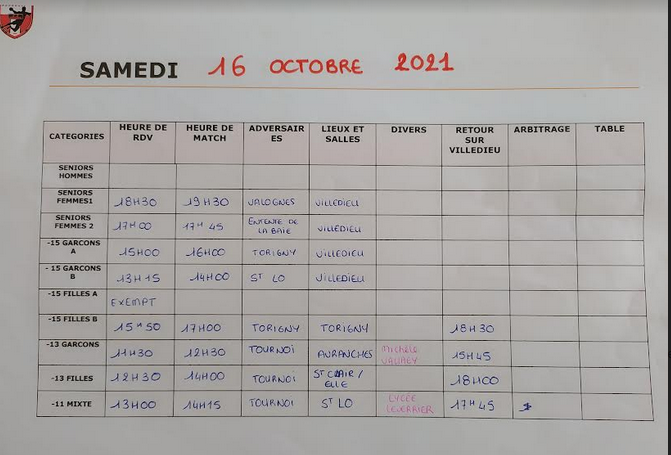 SAMEDI 16 OCTOBRE 2021
CATEGORIES HEURE DE RDV HEURE DE MATCH ADVERSAIRES LIEUX ET SALLES DIVERS RETOUR SUR VILLEDIEU ARBITRAGE TABLE
SENIORS HOMMES
SENIORS FEMMES1 18H30 19H30 VALOGNES VILLEDIEU
SENIORS FEMMES 2 17H00 17H45 ENTENTE DE LA BAIE VILLEDIEU
-15 GARCONS A 15H00 16H00 TORIGNY VILLEDIEU
- 15 GARCONS B 13H15 14H00 ST LO VILLEDIEU
-15 FILLES A EXEMPT
-15 FILLES B 15H50 17H00 TORIGNY TORIGNY 18H30
-13 GARCONS 11H30 12H30 TOURNOI AVRANCHES 15H45
-13 FILLES 12H30 14H00 TOURNOI ST CLAIR / ELLE 18H00
-11 MIXTE 13H00 14H15 TOURNOI ST LO LYCEE LEVERRIER 17H45